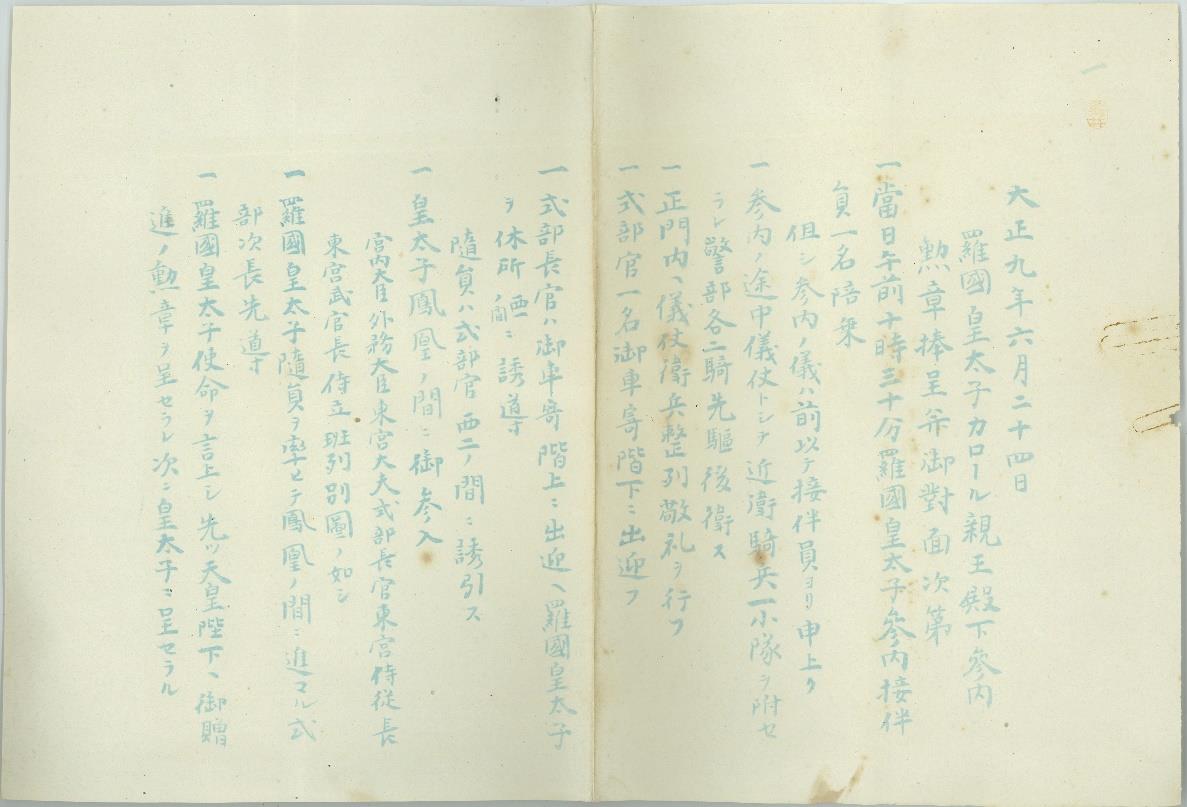 一
大正九年六月二十四日
羅國皇太子カロール親王殿下參内
勲章捧呈并御對面次第
一當日午前十時三十分羅國皇太子參内接伴
員一名陪乗
但シ参内ノ儀ハ前以テ接伴員ヨリ申上ク
一参内ノ途中儀仗トシテ近衛騎兵一小隊ヲ附セ
ラレ警部各二騎先驅後衛ス
一正門内ヘ儀仗衛兵整列敬礼ヲ行フ
一式部官一名御車寄階下ニ出迎フ
一式部長官ハ御車寄階上ニ出迎ヘ羅國皇太子
ヲ休所西ノ間ニ誘導
隨員ハ式部官西二ノ間ニ誘引ス
一皇太子鳳凰ノ間ニ御参入
宮内大臣外務大臣東宮大夫式部長官東宮侍従長
東宮武官長侍立班列別圖ノ如シ
一羅國皇太子隨員ヲ率セテ鳳凰ノ間ニ進マル式
部次長先導
一羅國皇太子使命ヲ言上シ先ツ天皇陛下ヘ御贈
進ノ勲章ヲ呈セラレ次ニ皇太子ニ呈セラル